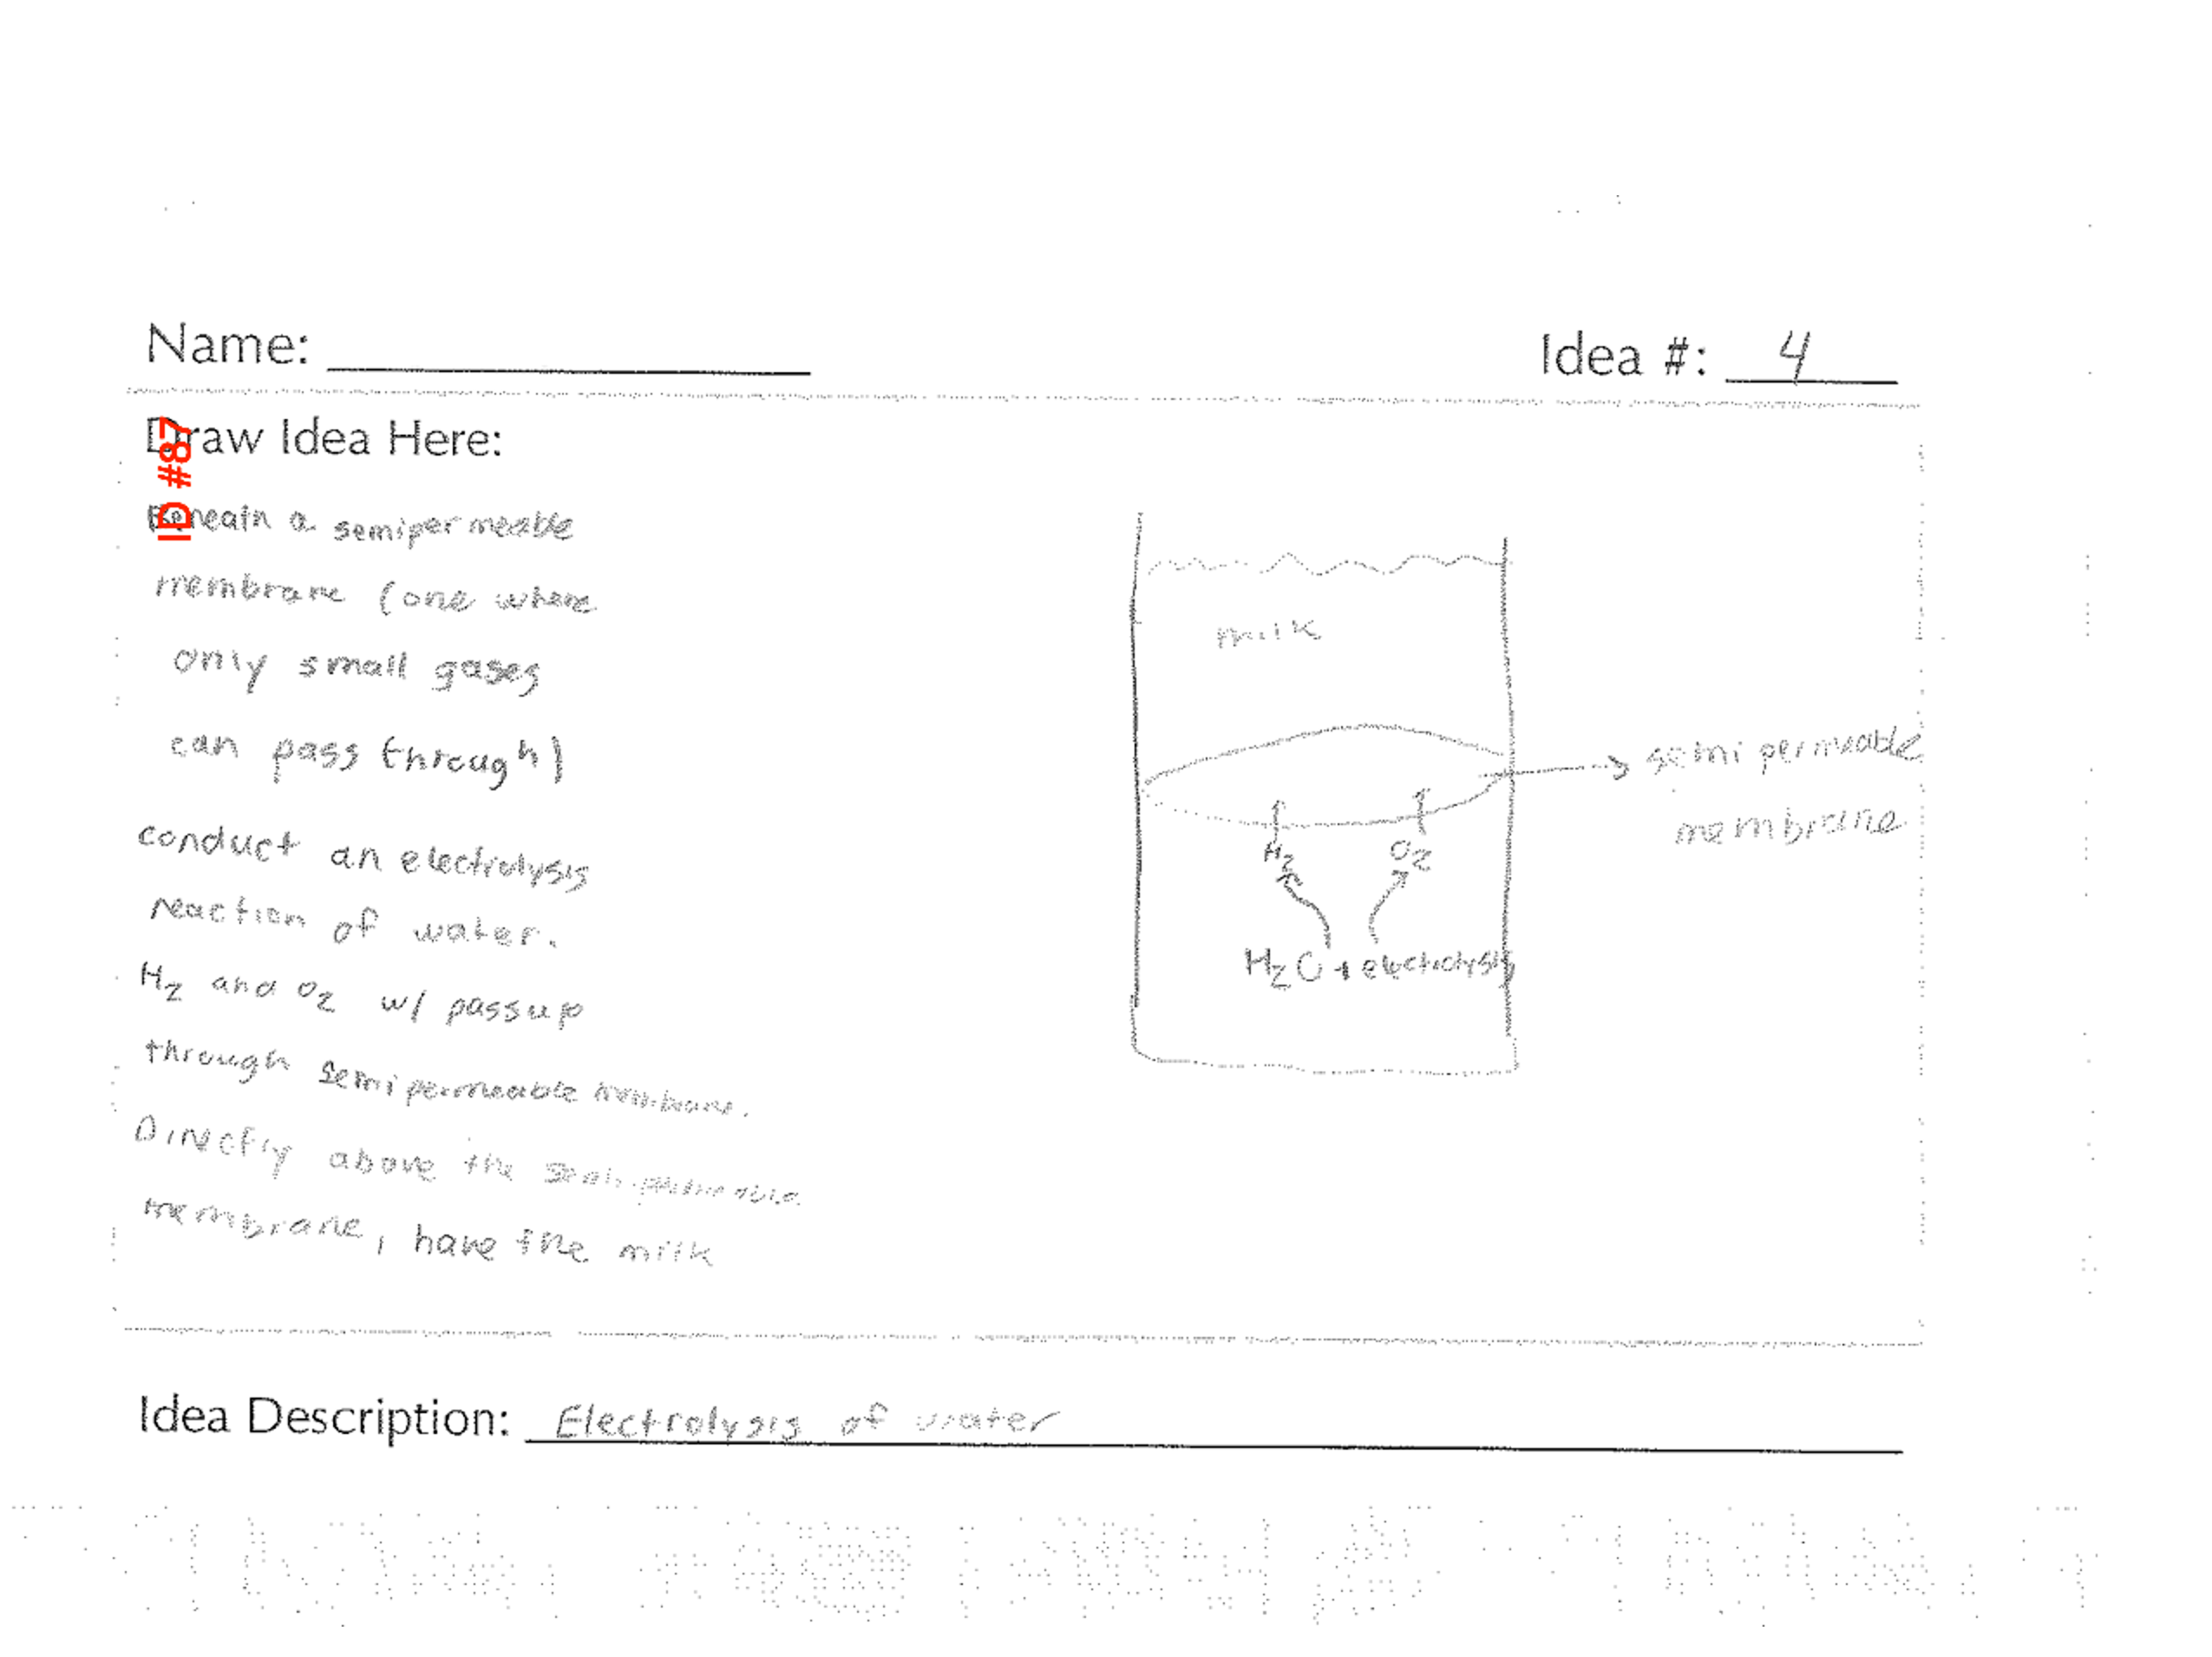 Name:
Idea #: 4
Draw Idea Here:
ID #87
Beneath a semipermeable
membrane (one where
only small gases
can pass through)
conduct an electrolysis
reaction of water.
H2 and O2 w/ pass up
through semipermeable membrane.
Directly above the semi-permeable
membrane, have the milk
milk
semipermeable
membrane
H2 O2
H2O + electrolysis
Idea Description: Electrolysis of water